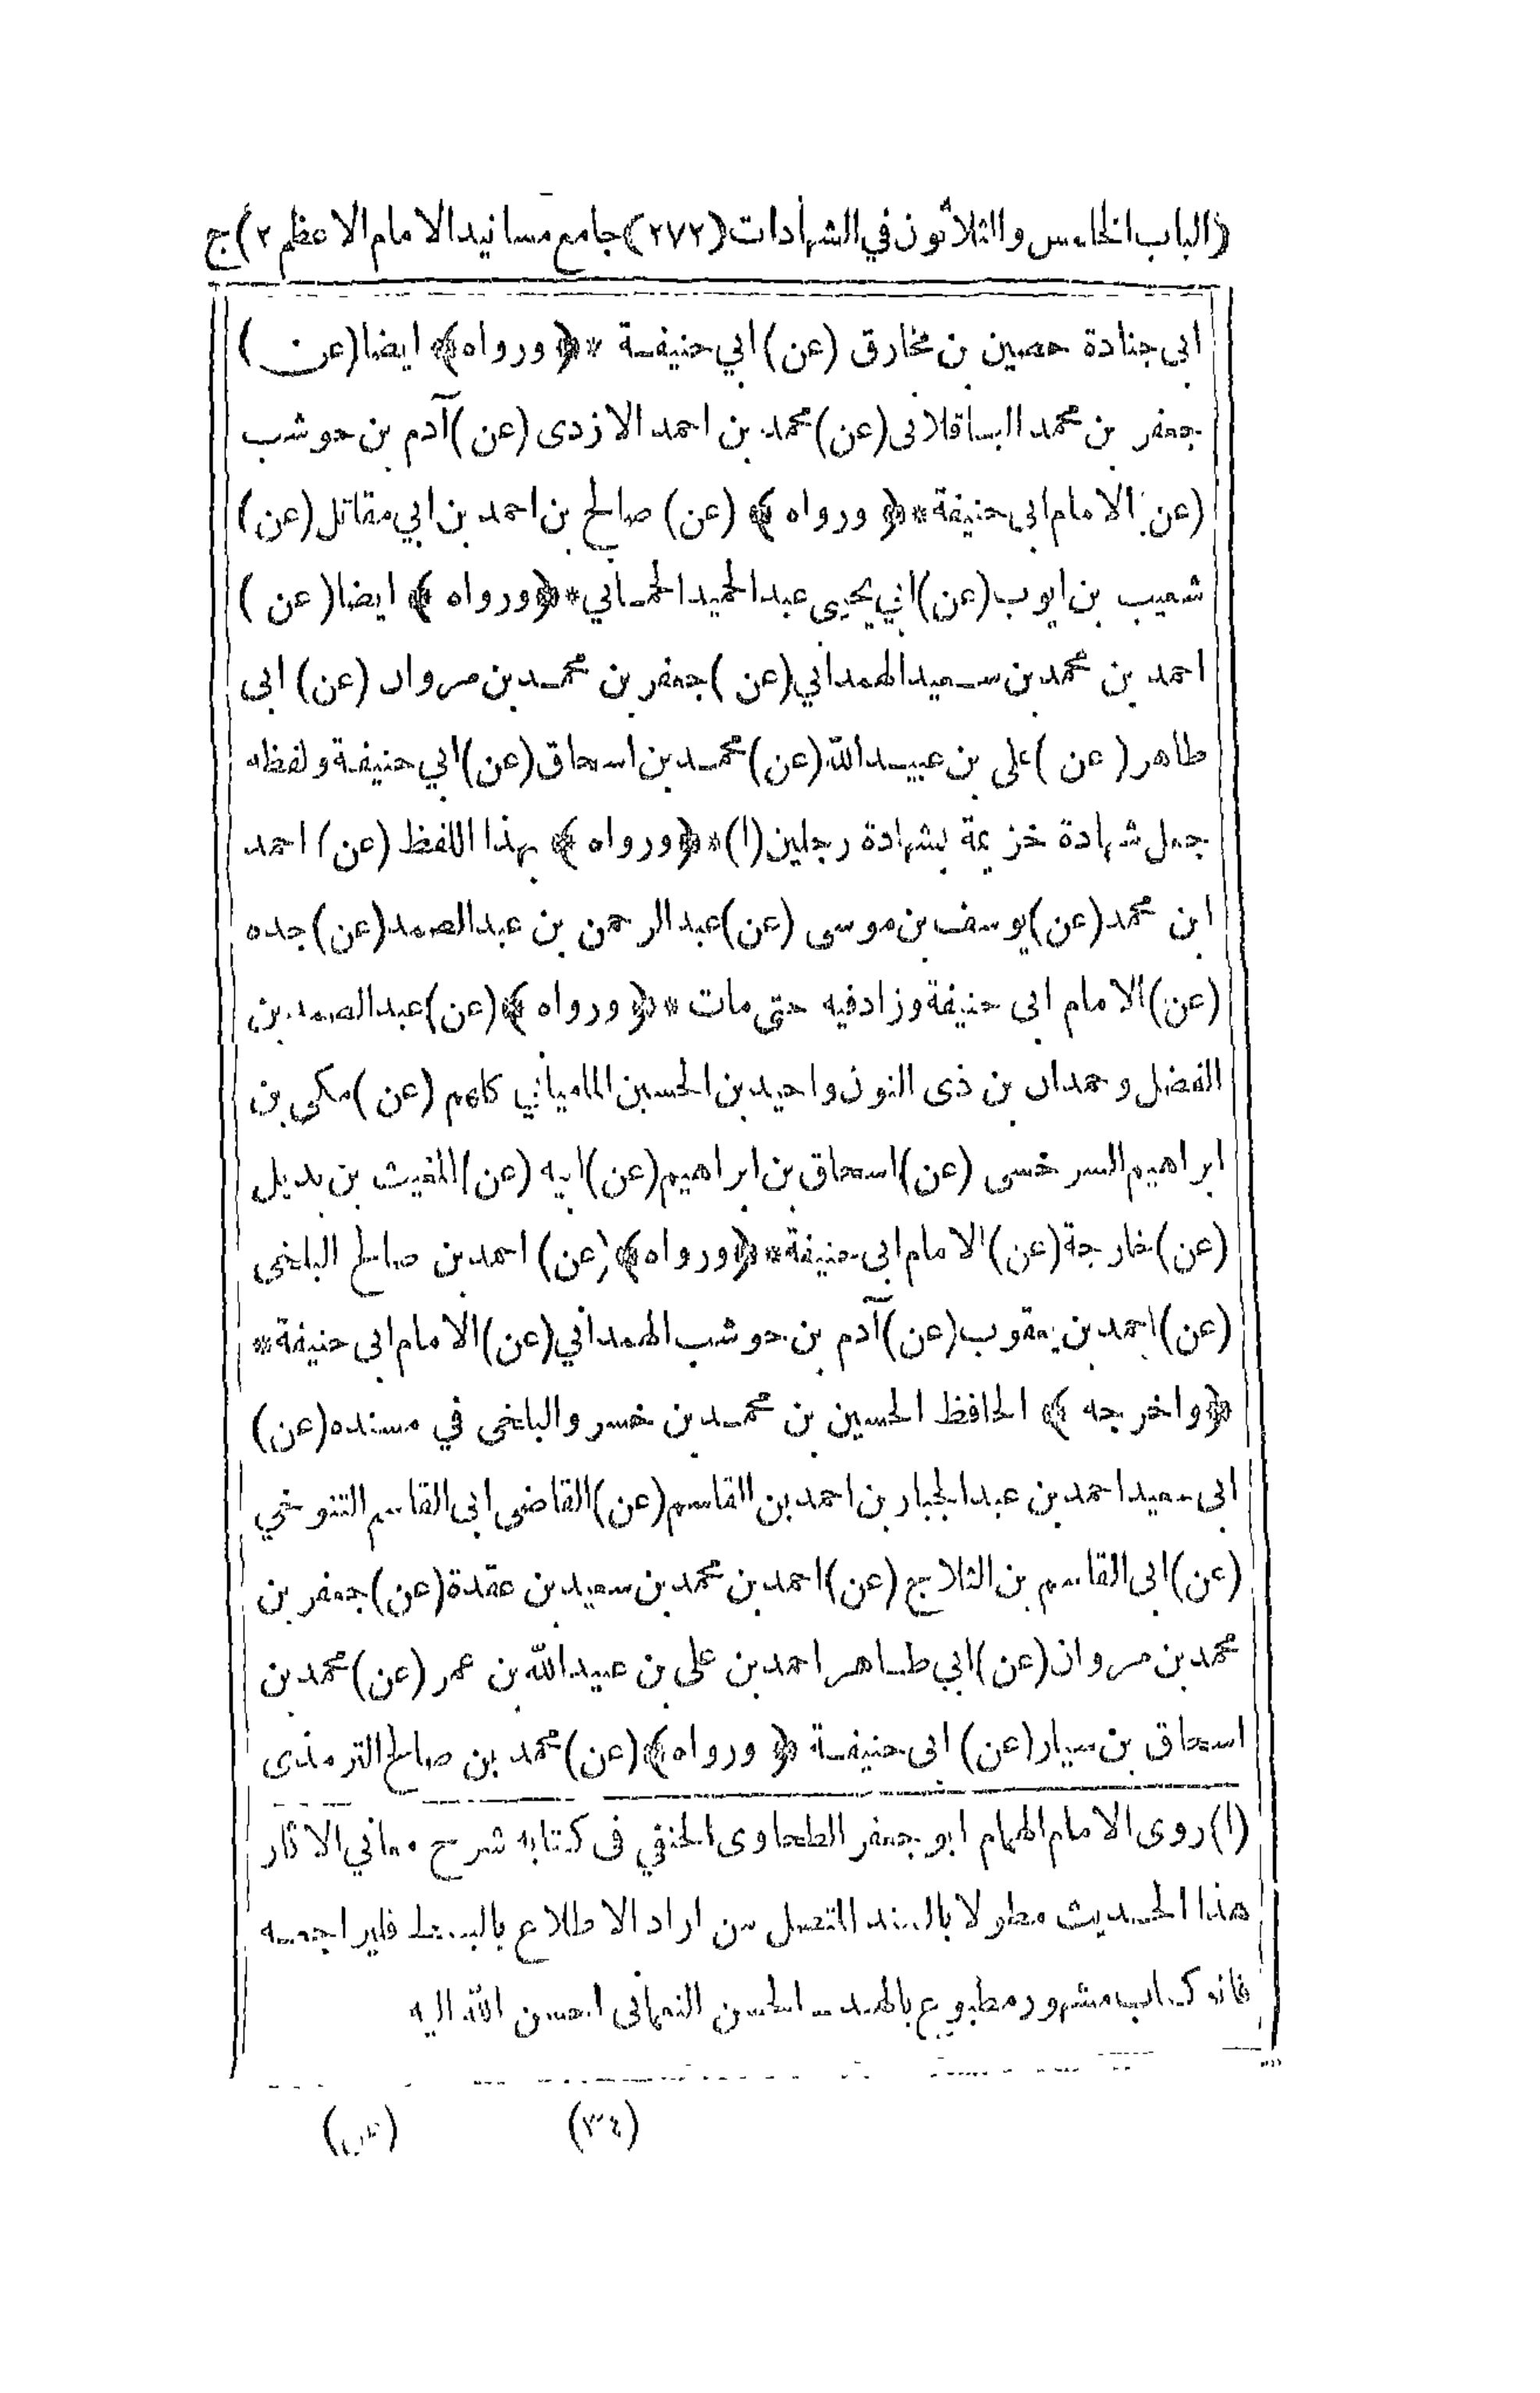 (الباب الخامس والثلاثون في الشهادات (٢٧٢) جامع مسانيد الامام الاعظم ٢) ج
ابى جنادة حصين بن مخارق (عن) ابي حنيفة * ﴿ورواه﴾ ايضا (عن)
جعفر بن محمد الباقلانى (عن) محمد بن احمد الازدى (عن) آدم بن حوشب
(عن) الامام ابى حنيفة * ﴿ورواه﴾ (عن) صالح بن احمد بن ابي مقاتل (عن)
شعيب بن ايوب (عن) ابي يحيى عبد الحميد الحماني * ﴿ورواه﴾ ايضا (عن)
احمد بن محمد بن سعيد الهمداني (عن) جعفر بن محمد بن مروان (عن) ابى
طاهر (عن) على بن عبيد الله (عن) محمد بن اسحاق (عن) ابي حنيفة ولفظه
جعل شهادة خزيمة بشهادة رجلين (١) * ﴿ورواه﴾ بهذا اللفظ (عن) احمد
ابن محمد (عن) يوسف بن موسى (عن) عبد الرحمن بن عبد الصمد (عن) جده
(عن) الامام ابى حنيفة وزاد فيه حتى مات * ﴿ورواه﴾ (عن) عبد الصمد بن
الفضل وحمدان بن ذى النون واحيد بن الحسين الماميانى كلهم (عن) مكى بن
ابراهيم السرخسى (عن) اسحاق بن ابراهيم (عن) ابيه (عن) المغيث بن بديل
(عن) خارجة (عن) الامام ابى حنيفة * ﴿ورواه﴾ (عن) احمد بن صالح البلخى
(عن) احمد بن يعقوب (عن) آدم بن حوشب الهمداني (عن) الامام ابى حنيفة *
﴿واخرجه﴾ الحافظ الحسين بن محمد بن خسرو البلخى في مسنده (عن)
ابى سعيد احمد بن عبد الجبار بن احمد بن القاسم (عن) القاضى ابى القاسم التنوخي
(عن) ابى القاسم بن الثلاج (عن) احمد بن محمد بن سعيد بن عقدة (عن) جعفر بن
محمد بن مروان (عن) ابي طاهر احمد بن على بن عبيد الله بن عمر (عن) محمد بن
اسحاق بن سيار (عن) ابى حنيفة ﴿ورواه﴾ (عن) محمد بن صالح الترمذى
(١) روى الامام الهمام ابو جعفر الطحاوى الحنفي فى كتابه شرح معاني الاثار
هذا الحديث مطولا بالسند المتصل من اراد الاطلاع بالبسط فليراجعه
فانه كتاب مشهور مطبوع بالهند ـ الحسن النعمانى احسن الله اليه
(٣٤)